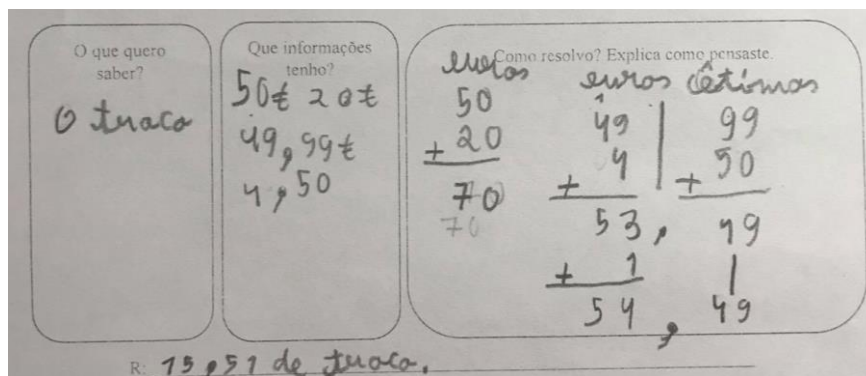 O que quero
saber?
O traco
Que informações
tenho?
50€ 20€
49,99€
4,50
Como resolvo? Explica como pensaste.
euros
50
+ 20
70
70
euros cêtimos
1
49 | 99
+ 4 | + 50
53, 49
+ 1 |
54, 49
R: 15,51 de traco.